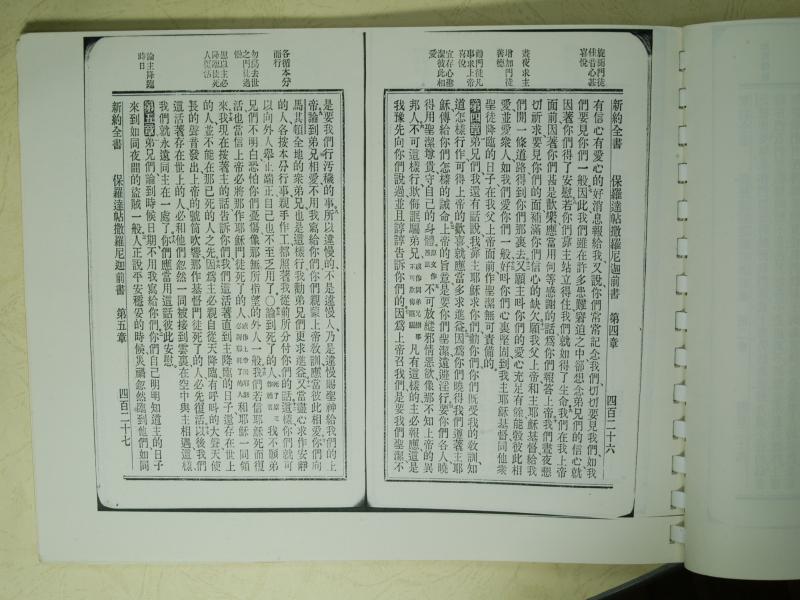 晝夜求主
增加門徒
善德
勸門徒凡
事求上帝
喜悅
宜存心聖
潔彼此相
愛
新約全書　保羅達帖撒羅尼迦前書　第四章　四百二十六
有信心有愛心的好消息報給我又說你們常常記念我們切切要見我們如我
們要見你們一般因此我們雖在許多患難窘迫之中卻想念弟兄們的信心就
因著你們得了安慰若你們靠主站立得住我們就如得了生命我們在我上帝
面前因著你們甚是歡樂應當用何等感謝的話爲你們報答上帝我們晝夜懇
切祈求要見你們的面補滿你們信心的缺欠願我父上帝和主耶穌基督給我
們開一條道路得到你們那裏去又願主叫你們的愛心充足有餘能彀彼此相
愛並愛衆人如我們愛你們一般好叫你們心裏堅固到我主耶穌基督同他衆
聖徒降臨的日子在我父上帝面前作聖潔無可責備的
第四章弟兄們我還有話說我靠主耶穌求你們勸你們你們既受我的敎訓知
道怎樣行作可得上帝的歡喜就應當多求進益因爲你們曉得我們遵著主耶
穌傳給你們怎樣的誡命上帝的旨意是要你們聖潔遠避淫行要你們各人曉
得用聖潔尊貴守自己的身體不可放縱邪情惡欲像那不知上帝的異
邦人不可這樣行欺侮誆騙弟兄凡有這樣的主必報應這是
我豫先向你們說過並且諄諄告訴你們的因爲上帝召我們是要我們聖潔不
各循本分
而行
勿爲去世
之門徒過
論主降臨
時日
是要我們行汚穢的事所以違慢的不是違慢人乃是違慢賜聖神給我們的上
帝論到弟兄相愛不用我寫給你們你們親蒙上帝敎訓應當彼此相愛你們向
馬其頓全地的衆弟兄也是這樣行我勸弟兄們更求進益又當盡心求作安靜
的人各按本分行事親手作工都照著我從前所分付你們的話這樣你們就可
以向外人舉止端正自己也不至乏用了〇論到死了的人我不願弟
兄們不明白恐怕你們憂傷像那無所指望的外人一般我們若信耶穌死而復
活也當信上帝必將那作耶穌門徒死了的人和耶穌一同領
來我現在按著主的話告訴你們我們這活著直到主降臨的日子還存在世上
的人並不能在那已死的人之先因爲主必親自從天降臨有呼叫的大聲天使
長的聲音發出上帝的號筒吹響那作基督門徒死了的人必先復活以後我們
這活著存在世上的人必和他們忽然一同被接到雲裏在空中與主相遇這樣
我們就永遠同主在一處了你們應當用這話彼此安慰
第五章弟兄們論到時候日期不用我寫給你們你們自己明明知道主的日子
來到如同夜間的盜賊一般人正說平安穩妥的時候災禍忽然臨到他們如同
新約全書　保羅達帖撒羅尼迦前書　第五章　四百二十七